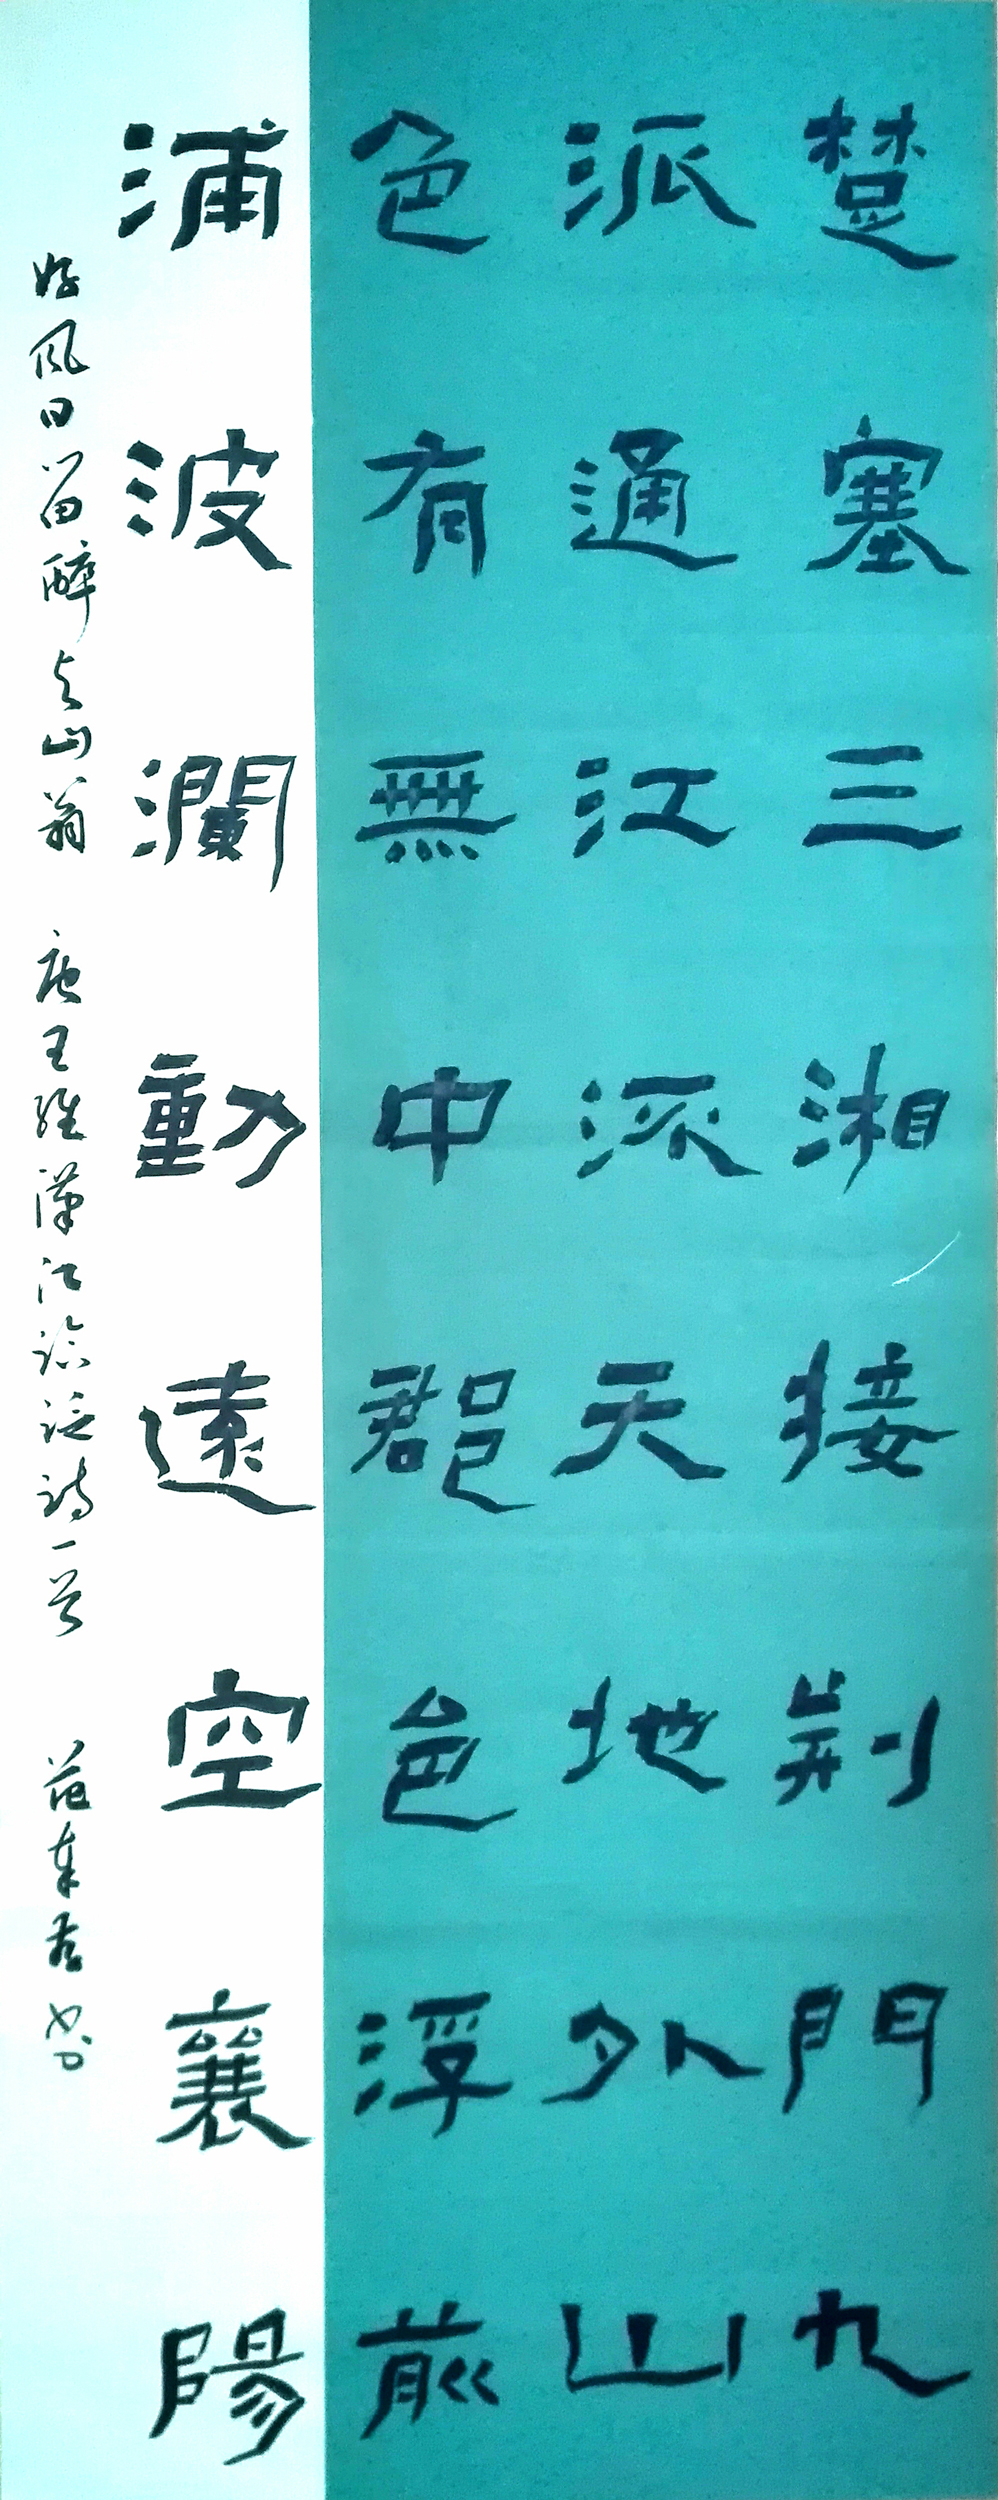 楚塞三湘接荆門九
派通江流天地外山
色有無中郡邑浮前
浦波瀾動遠空襄陽
好風日留醉与山翁 唐王維漢江臨泛詩一首 范書